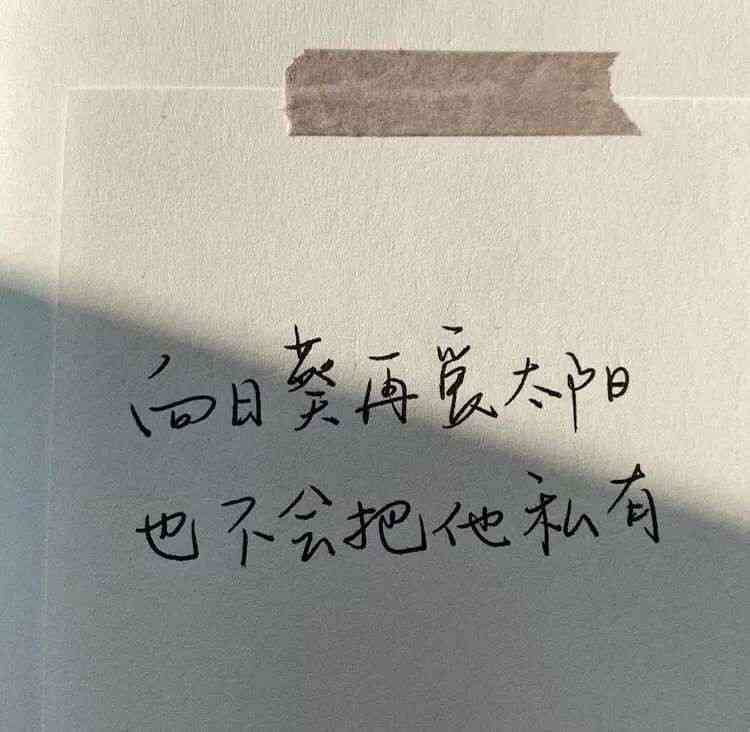 向日葵再爱太阳
也不会把他私有